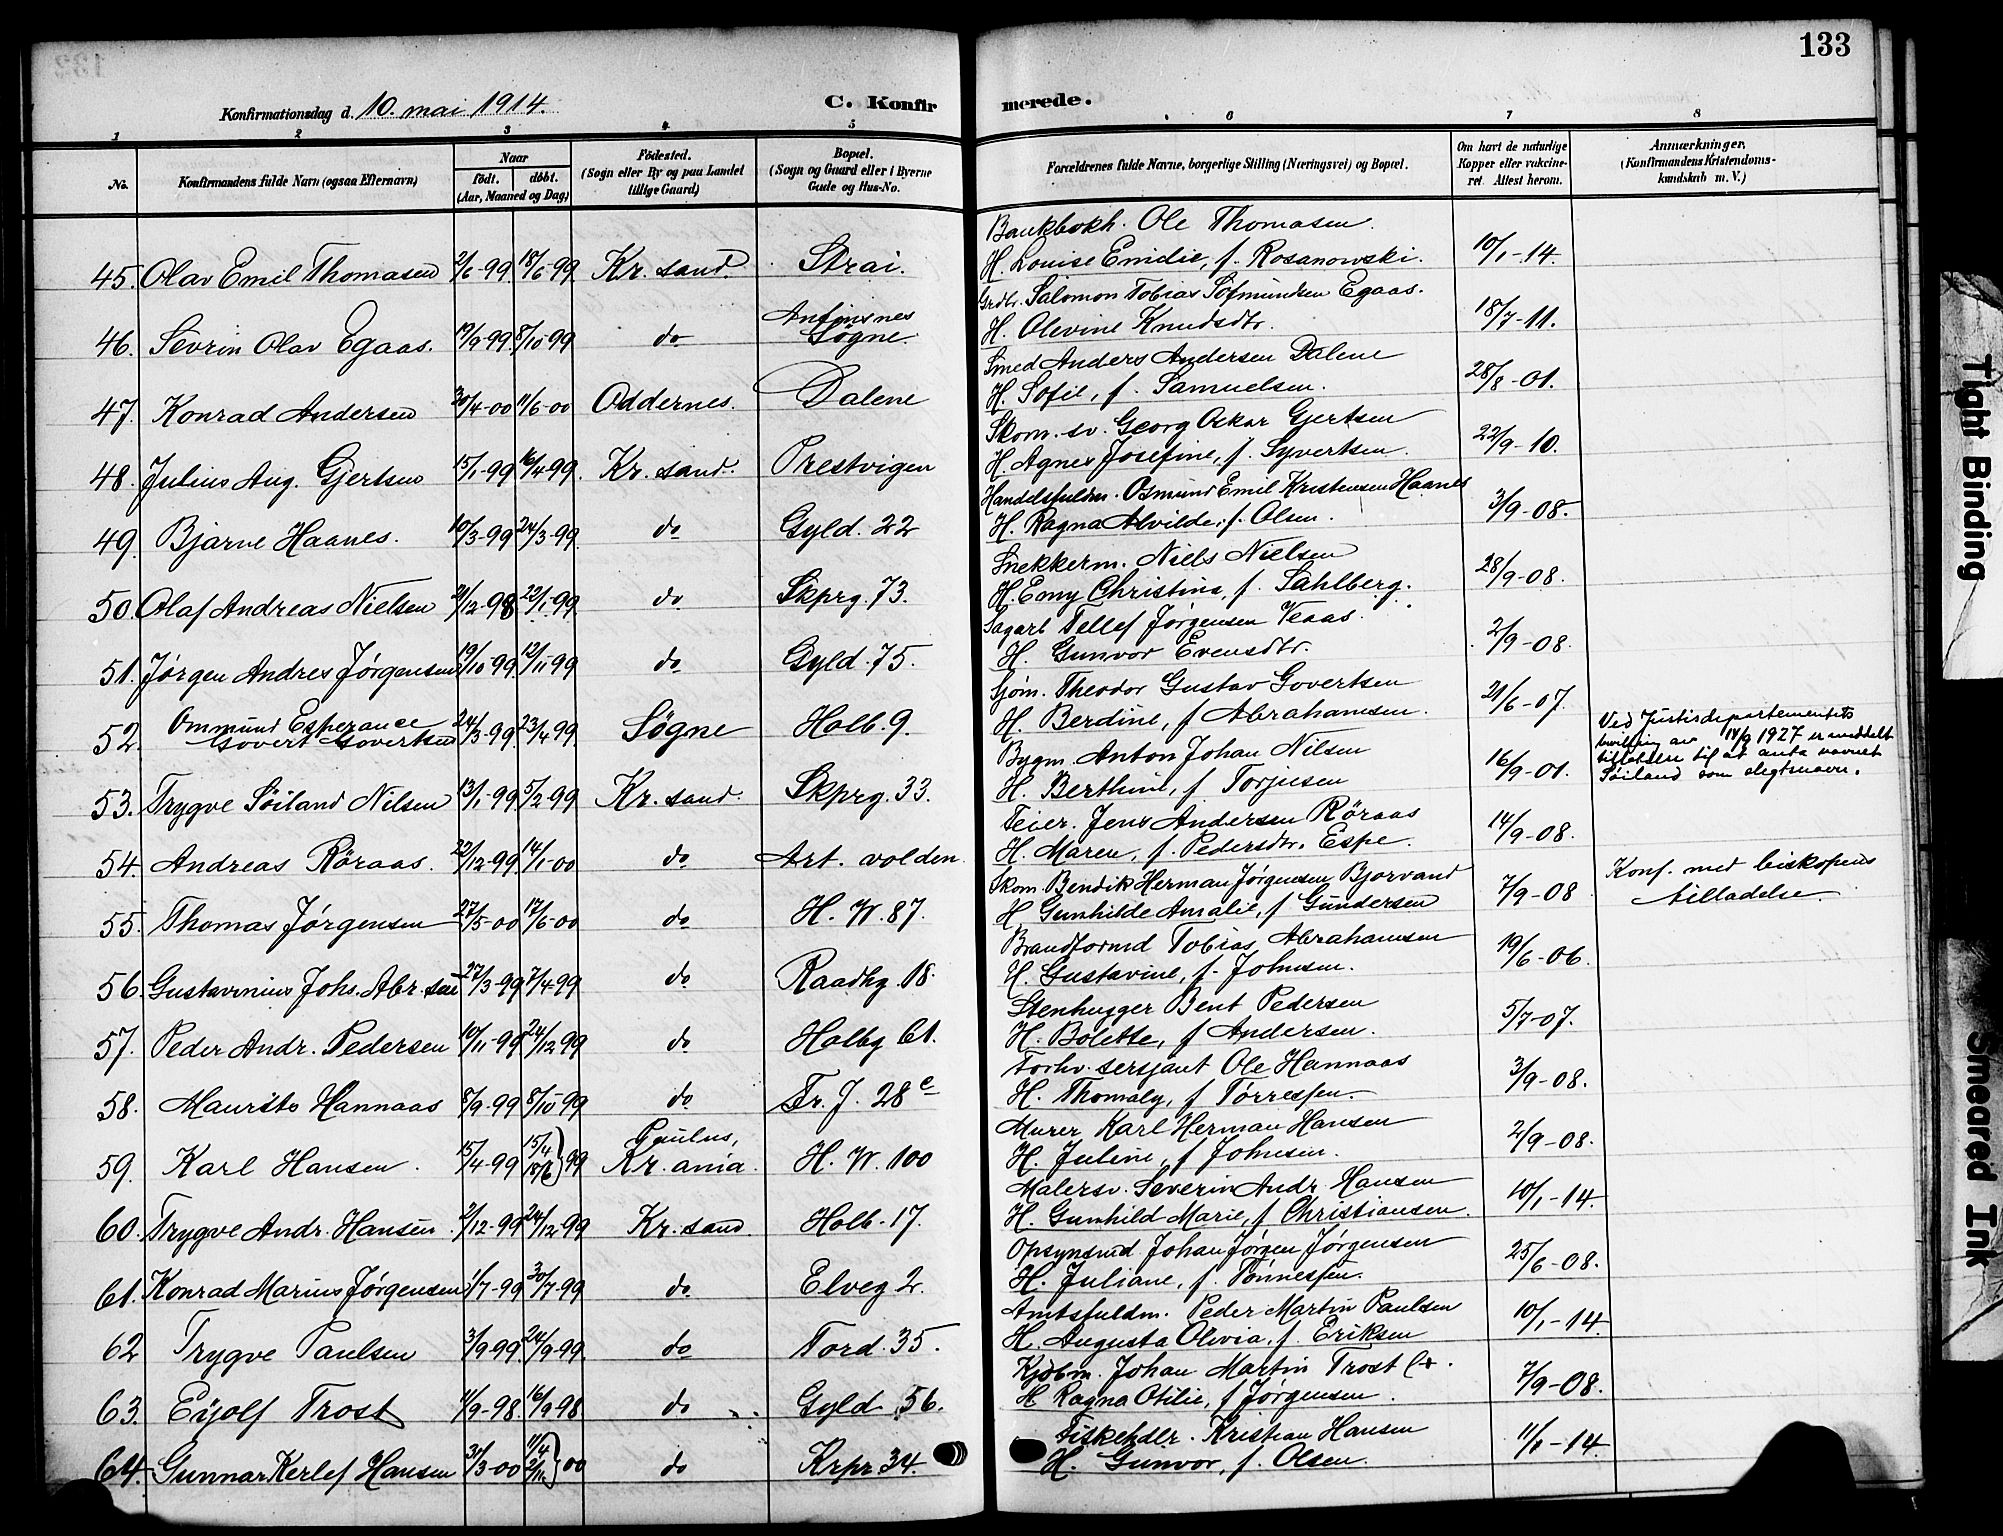 133
Konfirmationsdag d. 10. mai 1914.
C. Konfirmerede.
1 2 3 4 5 6 7 8
No.
Konfirmandens fulde Navn (ogsaa Efternavn)
Naar
født. døbt.
(Aar, Maaned og Dag)
Fødested.
(Sogn eller By og paa Landet
tillige Gaard)
Bopæl.
(Sogn og Gaard eller i Byerne
Gade og Hus-No.
Forældrenes fulde Navne, borgerlige Stilling (Næringsvei) og Bopæl.
Om havt de naturlige
Kopper eller vakcine-
ret. Attest herom.
Anmærkninger,
(Konfirmandens Kristendoms-
kundskab m. V.)
Bankbokh. Ole Thomasen.
45. Olav Emil Thomasen 2/6-99 18/6-99 Kr. sand Strai. H. Louise Emilie, f. Rosanowski. 10/1-14.
Grdbr. Salomon Tobias Sofmundsen Egaas.
46. Sevrin Olav Egaas. 19/9-99 8/10-99 do Søgne. H. Olevine Knudsdtr. 18/7-11.
Smed Anders Andersen Dalene
47. Konrad Andersen 30/4-00 11/6-00 Oddernes. Dalene H. Sofie, f. Samuelsen. 28/8-01.
Skom. sv. Georg Oskar Gjertsen
48. Julius Aug. Gjertsen 15/1-99 16/4-99. Kr. sand. Prestvigen H. Agnes Josefine, f. Syvertsen. 22/9-10.
Handelsfuldm. Osmund Emil Kristensen Haanes
49. Bjarne Haanes. 10/3-99 24/3-99 do Gyld. 22 H. Ragna Alvilde, f. Olsen. 3/9-08.
Snekkerm. Niels Nielsen
50. Olaf Andreas Nielsen 21/12-98 22/1-99 do Skprg. 73. H. Emy Christina, f. Sahlberg. 28/9-08.
Sagarb. Tellef Jørgensen Veaas.
51. Jørgen Andres Jørgensen 19/10-99 12/11-99 do Gyld. 75. H. Gunvor Evensdtr. 2/9-08.
Sjøm. Theodor Gustav Govertsen
52. Ommund Esperance Govert Govertsen 24/3-99 23/4-99 Søgne Holb. 9. H. Berdine, f. Abrahamsen. 21/6-07.
Ved Justisdepartementets
bevilling av 14/9 1927 er meddelt
tillatelse til at anta navnet
Søiland som slegtsnavn.
Bygm. Anton Johan Nilsen
53. Trygve Søiland Nilsen 13/1-99 5/2-99 Kr. sand. Skprg. 33. H. Berthine, f. Torjusen 16/9-01.
Feier. Jens Andersen Røraas
54. Andreas Røraas. 22/12-99 14/1-00 do Art. volden H. Maren, f. Pedersdtr. Espe. 14/9-08.
Skom. Bendik Herman Jørgensen Bjorvand
55. Thomas Jørgensen 27/5-00 17/6-00 do H. W. 87. H. Gunhilde Amalie, f. Gundersen 7/9-08
Konf. med biskopens
tilladelse.
Brandformd Tobias Abrahamsen
56. Gustavinius Johs. Abr. sen 27/3-99 7/4-99 do Raadhg. 18. H. Gustavine, f. Johnsen. 19/6-06.
Stenhugger Bent Pedersen
57. Peder Andr. Pedersen 10/11-99 24/12-99 do Holbg 61. H. Bolette, f. Andersen. 5/7-07.
Forhv. sersjant Ole Hannaas
58. Maurits Hannaas 8/9-99 8/10-99 do Fr. J. 28 c H. Thomaly, f. Tørresen. 3/9-08.
Murer Karl Herman Hansen
59. Karl Hansen. 15/4-99 15/4 18/6} 99 Paulus, Kr. ania. H. W. 100 H. Juline, f. Johnsen. 2/9-08.
Malersv. Severin Andr. Hansen
60. Trygve Andr. Hansen 2/12-99 24/12-99 Kr. sand. Holb. 17. H. Gunhild Marie, f. Christiansen. 10/1-14.
Opsynsmd. Johan Jørgen Jørgensen
61. Konrad Marius Jørgensen 1/7-99 30/7-99 do Elveg 2. H. Juliane, f. Tønnesen. 25/6-08.
Amtsfuldm. Peder Martin Paulsen
62 Trygve Paulsen 3/9-99. 24/9-99. do Tord. 35. H. Augusta Olivia, f. Eriksen 10/1-14.
Kjøbm. Johan Martin Trost
63. Eyolf Trost 11/9-98. 16/9-98. do Gyld. 56. H Ragna Otilie, f Jørgensen. 7/9-08.
Fiskehdlr. Kristian Hansen
64. Gunnar Kerlef Hansen 31/3-00 00 do Krpr 34. H. Gunvor, f. Olsen. 11/1-14.
Tight Binding
Smeared Ink